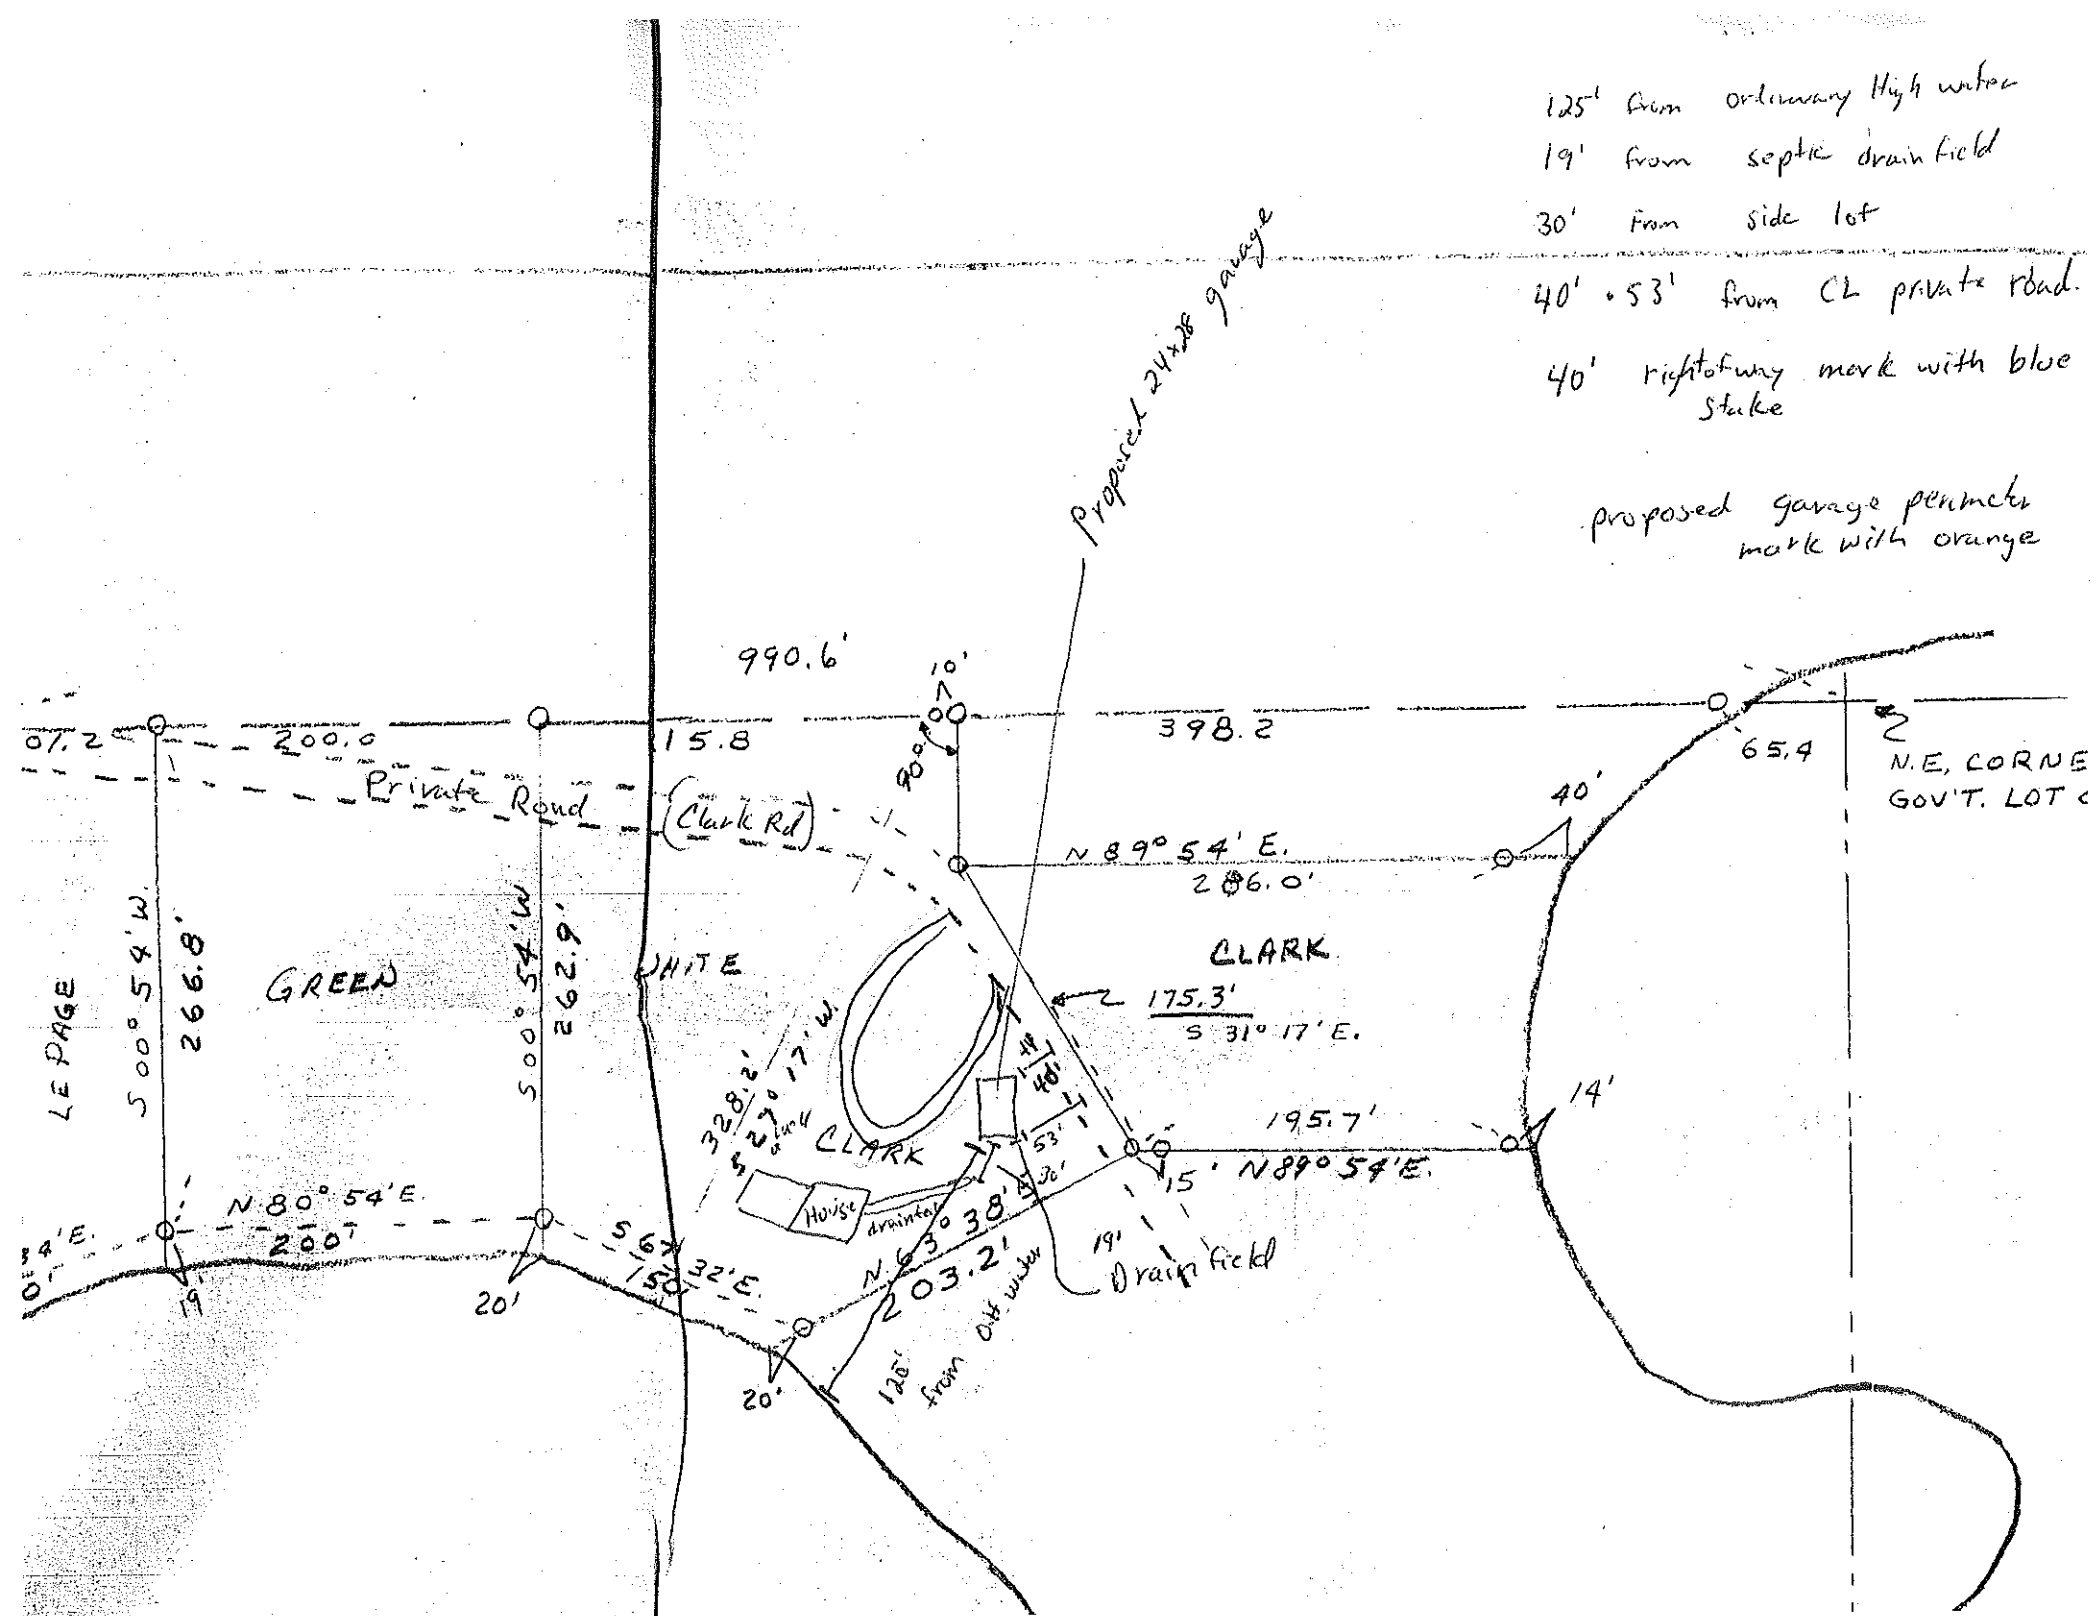 125' from ordinary High water
19' from septic drainfield
30' From side lot
40' • 53' from CL private road.
40' rightofway mark with blue
stake
proposed garage perimeter
mark with orange
Proposed 24x28 garage
990.6'
10'
07.2
200.0
15.8
398.2
65.4
N.E. CORNE
GOV'T. LOT
Private Road (Clark Rd)
40'
N 89° 54' E.
286.0'
LE PAGE
S 00° 54' W.
266.8'
GREEN
S 00° 54' W
262.9'
WHITE
CLARK
175.3'
S 31° 17' E.
328.2'
S 29° 17' W.
CLARK
40'
53'
30'
195.7'
N 89° 54' E.
14'
15'
House
N 80° 54' E.
200'
34' E.
0'
19'
20'
S 67° 32' E.
150'
N. 63° 38'
203.2'
20'
125'
from O.H. water
19'
Drainfield